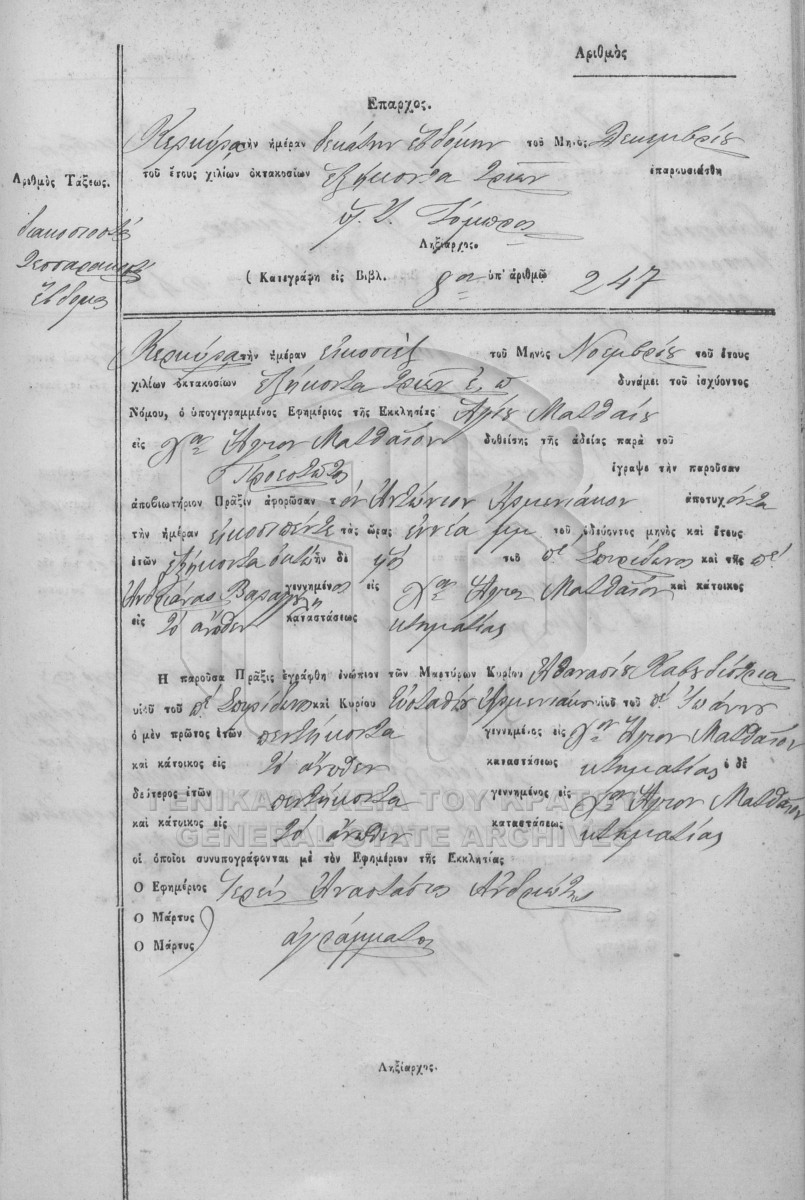 Αριθμὸς
Επαρχος.
Κερκύρα τὴν ἡμέραν δεκάτην ἑβδόμην τοῦ Μηνὸς Δεκεμβρίου
τοῦ ἔτους χιλίων ὀκτακοσίων ἑξήκοντα τριῶν ἐπαρουσιάσθη
Ληξίαρχος.
( Κατεγράφη εἰς Βιβλ. 8ον ὑπ' ἀριθμῷ 247
Αριθμὸς Τάξεως.
διακοσιοστὸς
τεσσαρακοστὸς
ἕβδομος
Κερκύρα τὴν ἡμέραν εἰκοσιέξ τοῦ Μηνὸς Νοεμβρίου τοῦ ἔτους
χιλίων ὀκτακοσίων ἑξήκοντα τριῶν ἐ. π. δυνάμει τοῦ ἰσχύοντος
Νόμου, ὁ ὑπογεγραμμένος Εφημέριος τῆς Εκκλησίας Ἁγίου Ματθαίου
εἰς χον Ἅγιον Ματθαῖον δοθείσης τῆς ἀδείας παρὰ τοῦ
Προεστῶτος ἔγραψε τὴν παροῦσαν
ἀποβιωτήριον Πρᾶξιν ἀφορῶσαν τὸν Ἀντώνιον Ἀρμενιάκον ἀποτυχόντα
τὴν ἡμέραν εἰκοσιπέντε τὰς ὥρας ἐννέα μμ τοῦ ὁδεύοντος μηνὸς καὶ ἔτους
ἐτῶν ἑξήκοντα ὀκτὼ ἤδη υἱὸ τοῦ πο Σπυρίδωνος καὶ τῆς πο
Ἀνδριάνας γεννημένος εἰς χον Ἅγιον Ματθαῖον καὶ κάτοικος
εἰς τὸ ἄνωθεν καταστάσεως κτηματίας
Η παροῦσα Πρᾶξις ἐγράφθη ἐνώπιον τῶν Μαρτύρων Κυρίου Ἀθανασίου Καποδίστρια
υἱοῦ τοῦ πο Σπυρίδωνος καὶ Κυρίου Εὐσταθίου Ἀρμενιάκου υἱοῦ τοῦ πο Ἰωάννου
ὁ μὲν πρῶτος ἐτῶν πεντήκοντα γεννημένος εἰς χον Ἅγιον Ματθαῖον
καὶ κάτοικος εἰς τὸ ἄνωθεν καταστάσεως κτηματίας ὁ δὲ
δεύτερος ἐτῶν πεντήκοντα γεννημένος εἰς χον Ἅγιον Ματθαῖον
καὶ κάτοικος εἰς τὸ ἄνωθεν καταστάσεως κτηματίας
οἱ ὁποῖοι συνυπογράφονται μὲ τὸν Εφημέριον τῆς Εκκλησίας
Ο Εφημέριος Ἱερεὺς Ἀναστάσιος Ἀνδριώτης
Ο Μάρτυς
Ο Μάρτυς ἀγράμματοι
Ληξίαρχος.
ΓΕΝΙΚΑ ΑΡΧΕΙΑ ΤΟΥ ΚΡΑΤΟΥΣ
GENERAL STATE ARCHIVES